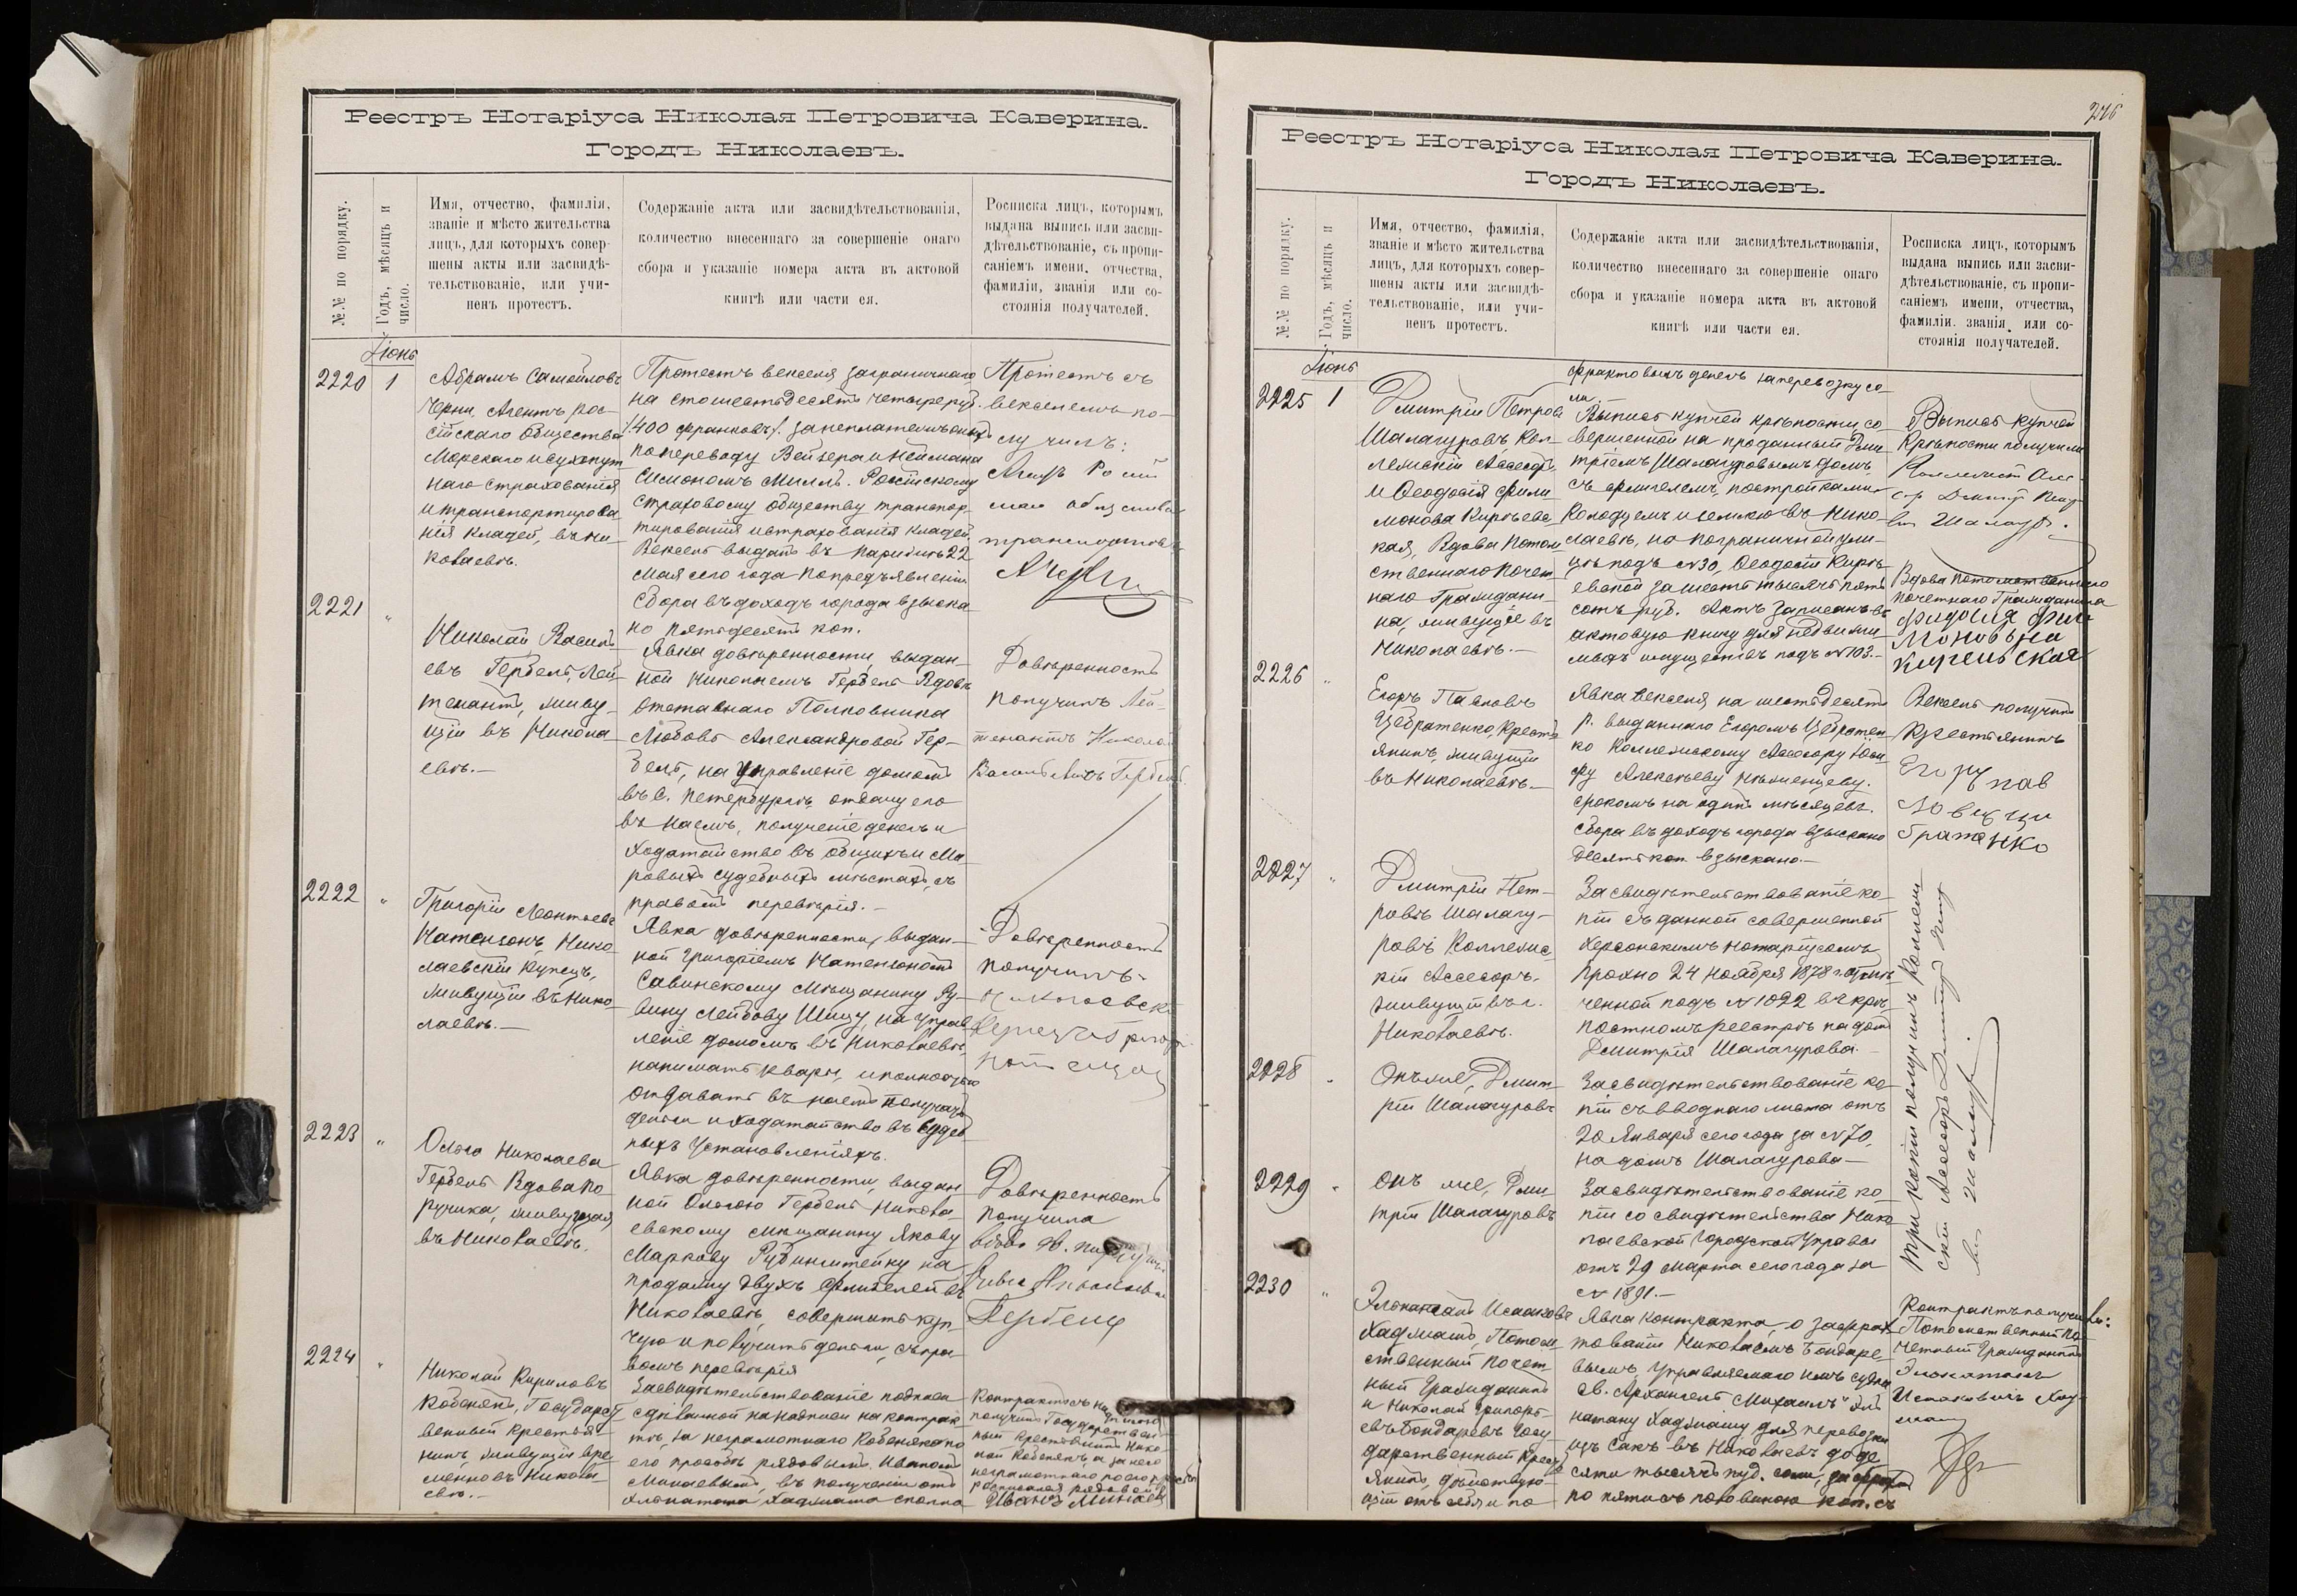 Реестръ Нотаріуса Николая Петровича Каверина.
Городъ Николаевъ.
№№ по порядку.
Годъ, мѣсяцъ и
число.
Имя, отчество, фамилія,
званіе и мѣсто жительства
лицъ, для которыхъ совер-
шены акты или засвидѣ-
тельствованіе, или учи-
ненъ протестъ.
Содержаніе акта или засвидѣтельствованія,
количество внесеннаго за совершеніе онаго
сбора и указаніе номера акта въ актовой
книгѣ или части ея.
Росписка лицъ, которымъ
выдана выпись или засви-
дѣтельствованіе, съ пропи-
саніемъ имени, отчества,
фамиліи, званія или со-
стоянія получателей.
Іюнь
2220
1
Абрамъ Самойловъ
Черни, Агентъ Рос-
сійскаго Общества
Морскаго и сухопут
наго страхованія
и транспортирова
нія кладей, въ Ни-
колаевѣ.
Протестъ векселя заграничнаго
на сто шестьдесятъ четыре руб.
/400 франковъ/. за неплатежъ оныхъ
по переводу Вейзера и Неймана
Симономъ Миллъ. Россійскому
страховому обществу транспор-
тированія и страхованія кладей.
Вексель выданъ въ Парижѣ 22
Мая сего года по предъявленіи
Сбора въ доходъ города взыска
но пятьдесятъ коп.
Протестъ съ
векселемъ по-
лучилъ:
2221
"
Николай Василь
евъ Гербель, Лей-
тенантъ, живу-
щій въ Никола-
евѣ.—
Явка довѣренности, выдан-
ной Николаемъ Гербель Вдовѣ
отставнаго Полковника
Любовь Александровой Гер-
бель, на управленіе домомъ
въ С. Петербургѣ, отдачу его
въ наемъ, полученіе денегъ и
ходатайство въ общихъ и Ми
ровыхъ судебныхъ мѣстахъ, съ
правомъ передовѣрія.—
Довѣренность
получилъ Лей-
тенантъ Никола
Васильевичъ Гербель
2222
"
Григорій Леонтьевъ
Натензонъ, Нико
лаевскій Купецъ,
живущій въ Нико-
лаевѣ.—
Явка довѣренности, выдан-
ной Григоріемъ Натензономъ
Савинскому Мѣщанину Ру-
вину Лейбову Шицу, на управ
леніе домомъ въ Николаевѣ,
нанимать кварт,
отдавать въ наемъ получать
деньги и ходатайство въ Судеб
ныхъ Установленіяхъ.
Довѣренность
получилъ.
2223
"
Ольга Николаева
Гербель Вдова По
ручика, живущая
въ Николаевѣ.
Явка довѣренности, выдан
ной Ольгою Гербель Никола-
евскому мѣщанину Якову
Маркову Рубинштейну на
продажу двухъ флигелей въ
Николаевѣ, совершить куп
чую и получить деньги, съ пра
вомъ передовѣрія
Довѣренность
получила
Гербель
2224
"
Николай Кириловъ
Кобенекъ, Государст
венный крестья-
нинъ, живущій вре
менно въ Никола-
евѣ.—
Засвидѣтельствованіе подписи
сдѣланной на надписи на контрак
тѣ, за неграмотнаго Кобеняка по
его просьбѣ рядовымъ Иваномъ
Минаевымъ, въ полученіи отъ
Хаджіата сполна
Контрактъ съ надписью
получилъ Государствен
ный крестьянинъ Нико-
лай Кобенякъ, а за него
неграмотнаго по его просьбѣ
росписался рядовой
Иванъ Минаевъ
276
Реестръ Нотаріуса Николая Петровича Каверина.
Городъ Николаевъ.
№№ по порядку.
Годъ, мѣсяцъ и
число.
Имя, отчество, фамилія,
званіе и мѣсто жительства
лицъ, для которыхъ совер-
шены акты или засвидѣ-
тельствованіе, или учи-
ненъ протестъ.
Содержаніе акта или засвидѣтельствованія,
количество внесеннаго за совершеніе онаго
сбора и указаніе номера акта въ актовой
книгѣ или части ея.
Росписка лицъ, которымъ
выдана выпись или засви-
дѣтельствованіе, съ пропи-
саніемъ имени, отчества,
фамиліи. званія. или со-
стоянія получателей.
Іюнь
фрактовыхъ денегъ за перевозку со-
ли.
2225
1
Дмитрій Петровъ
Шалагуровъ, Кол-
лежскій Ассесоръ
и Ѳеодосія Фили
монова Кирьевс
кая, Вдова Потом
ственнаго Почет
наго Граждани
на, живущіе въ
Николаевѣ.—
Выпись купчей крѣпости со
вершенной на проданный Дми
тріемъ Шалагуровымъ домъ,
съ флигелемъ, постройками
колодцемъ и землею въ Нико-
лаевѣ, по пограничной ули-
цѣ подъ №30, Ѳеодосіи Кирь-
евской за шесть тысячъ пять
сотъ руб. Актъ записанъ въ
актовую книгу для недвижи-
мыхъ имуществъ подъ №103.—
Выпись купчей
Крѣпости получили
Вдова потомственнаго
почетнаго Гражданина
Фидосия Фили
моновьна
Кирьевская
2226
"
Егоръ Павловъ
Цебратенко, Кресть
янинъ, живущій
въ Николаевѣ.—
Явка векселя на шестьдесятъ
р. выданнаго Егоромъ Цебратен
ко Коллежскому Ассесору Іоси
фу Алексѣеву Нѣменцеву.
срокомъ на одинъ мѣсяцъ.
Сбора въ доходъ города взыскано
десять коп. взыскано.—
Вексель получилъ
Крестьянинъ
Егоръ пав
ловъ Це
братенко
2227
"
Дмитрій Пет-
ровъ Шалагу-
ровъ Коллежс
кій Ассесоръ.
живущій въ г.
Николаевѣ.
Засвидѣтельствованіе ко-
піи съ данной совершенной
Херсонскимъ нотаріусомъ
Прохно 24 Ноября 1878 г. отмѣ
ченной подъ №1092 въ крѣ
постномъ реестрѣ на домъ
Дмитрія Шалагурова.—
Три копіи получилъ Коллеж
скій Ассесоръ Дмитрій Пет
2228
"
Онъ же, Дмит-
рій Шалагуровъ
Засвидѣтельствованіе ко-
піи съ вводнаго листа отъ
20 Января сего года за №70,
на домъ Шалагурова—
2229
"
Онъ же, Дми-
трій Шалагуровъ
Засвидѣтельствованіе ко-
піи со свидѣтельства Нико
лаевской Городской Управы
отъ 29 Марта сего года за
№1891.—
2230
"
Исааковъ
Потом
ственный Почет
ный Гражданинъ
и Николай Григорь-
евъ Бондаревъ Госу
дарственный Кресть
янинъ, дѣйствую-
щій отъ себя и по
Явка контракта, о зафрах
тованіи Николаемъ Бондаре-
вымъ управляемаго имъ судна
"Св. Архангелъ Михаилъ"
для перевозки
изъ Сакъ въ Николаевъ до де
сяти тысячъ пуд. соли,
по пяти съ половиною коп. съ
Контрактъ получили:
Потомственный По-
четный Гражданинъ